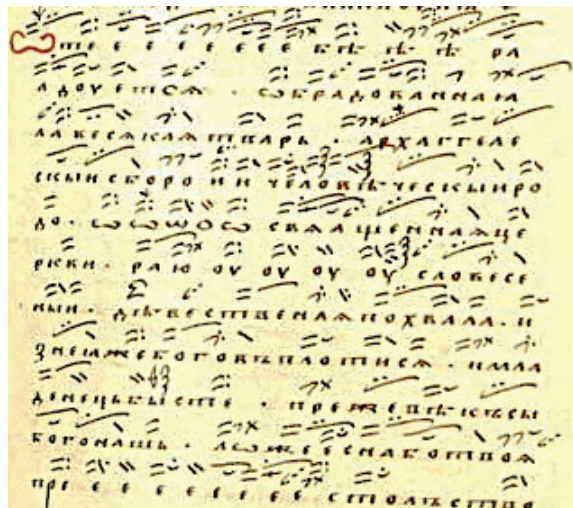 Ѡ тее е е е е е е бѣ ѣ ѣ ра
а доуетсѧ · ѡбрадованнаꙗ
ла всѧкаѧ тварь · архаггеле
скыи сборо и и человѣческыи ро
до · ѡ ѡ ѡ ѡ ѡ свѧ а щеннаѧ це
ркви · раю оу оу оу оу словесе
ныи · дѣвественаѧ похвала · и
з неꙗже богъ въплотисѧ · и мла
денець бысте · преже вѣкъ сы
бого нашь · лѡжеснаботвоѧ
пре е е е е е е е столъ ство